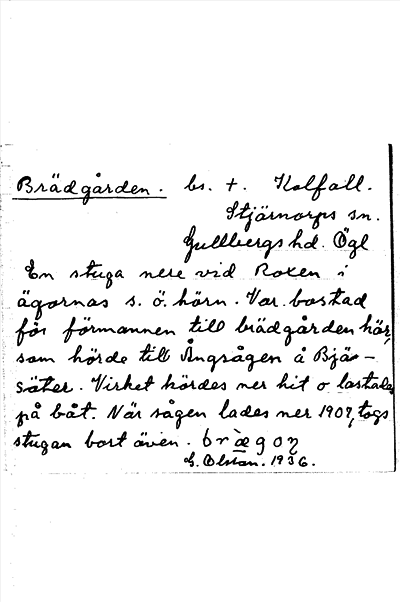 Brädgården. bs. +. Kolfall.
Stjärnorps sn.
Gullbergs hd. Ögl
En stuga nere vid Roxen i
ägornas s. ö. hörn. Var bostad
för förmannen till brädgården här,
som hörde till Ångsågen å Bjä-
säter. Virket kördes ner hit o lastades
på båt. När sågen lades ner 1907, togs
stugan bort även. brægoŋ
G. Olsson. 1936.